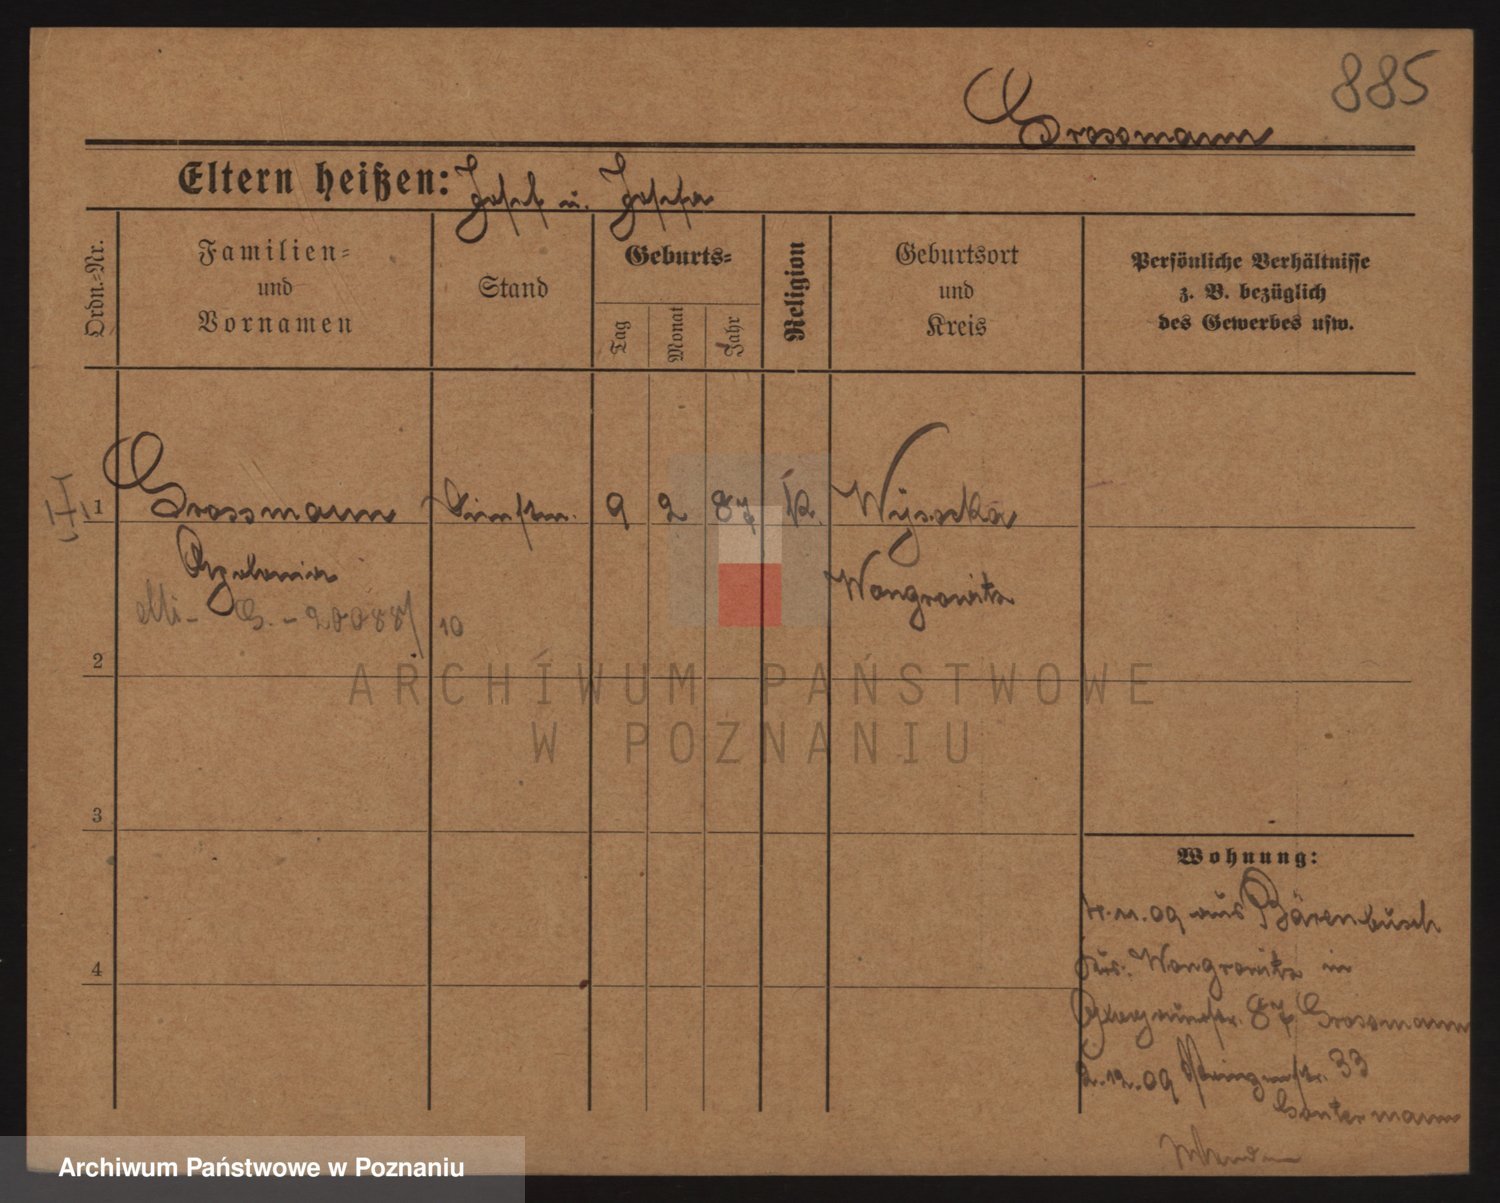 885
Grossmann
Eltern heißen: Josef u. Josefa
Ordn.-Nr.
Familien-
und
Vornamen
Stand
Geburts-
Tag
Monat
Jahr
Religion
Geburtsort
und
Kreis
Persönliche Verhältnisse
z. B. bezüglich
des Gewerbes usw.
1
Grossmann
9 2 87 k.
Wysoka
Apolonia
Wongrowitz
10
2
ARCHIWUM PAŃSTWOWE
W POZNANIU
3
Wohnung:
11.09 aus Bärenbusch
4
Wongrowitz in
87 Grossmann
2.12.09 33
Gontermann
Archiwum Państwowe w Poznaniu